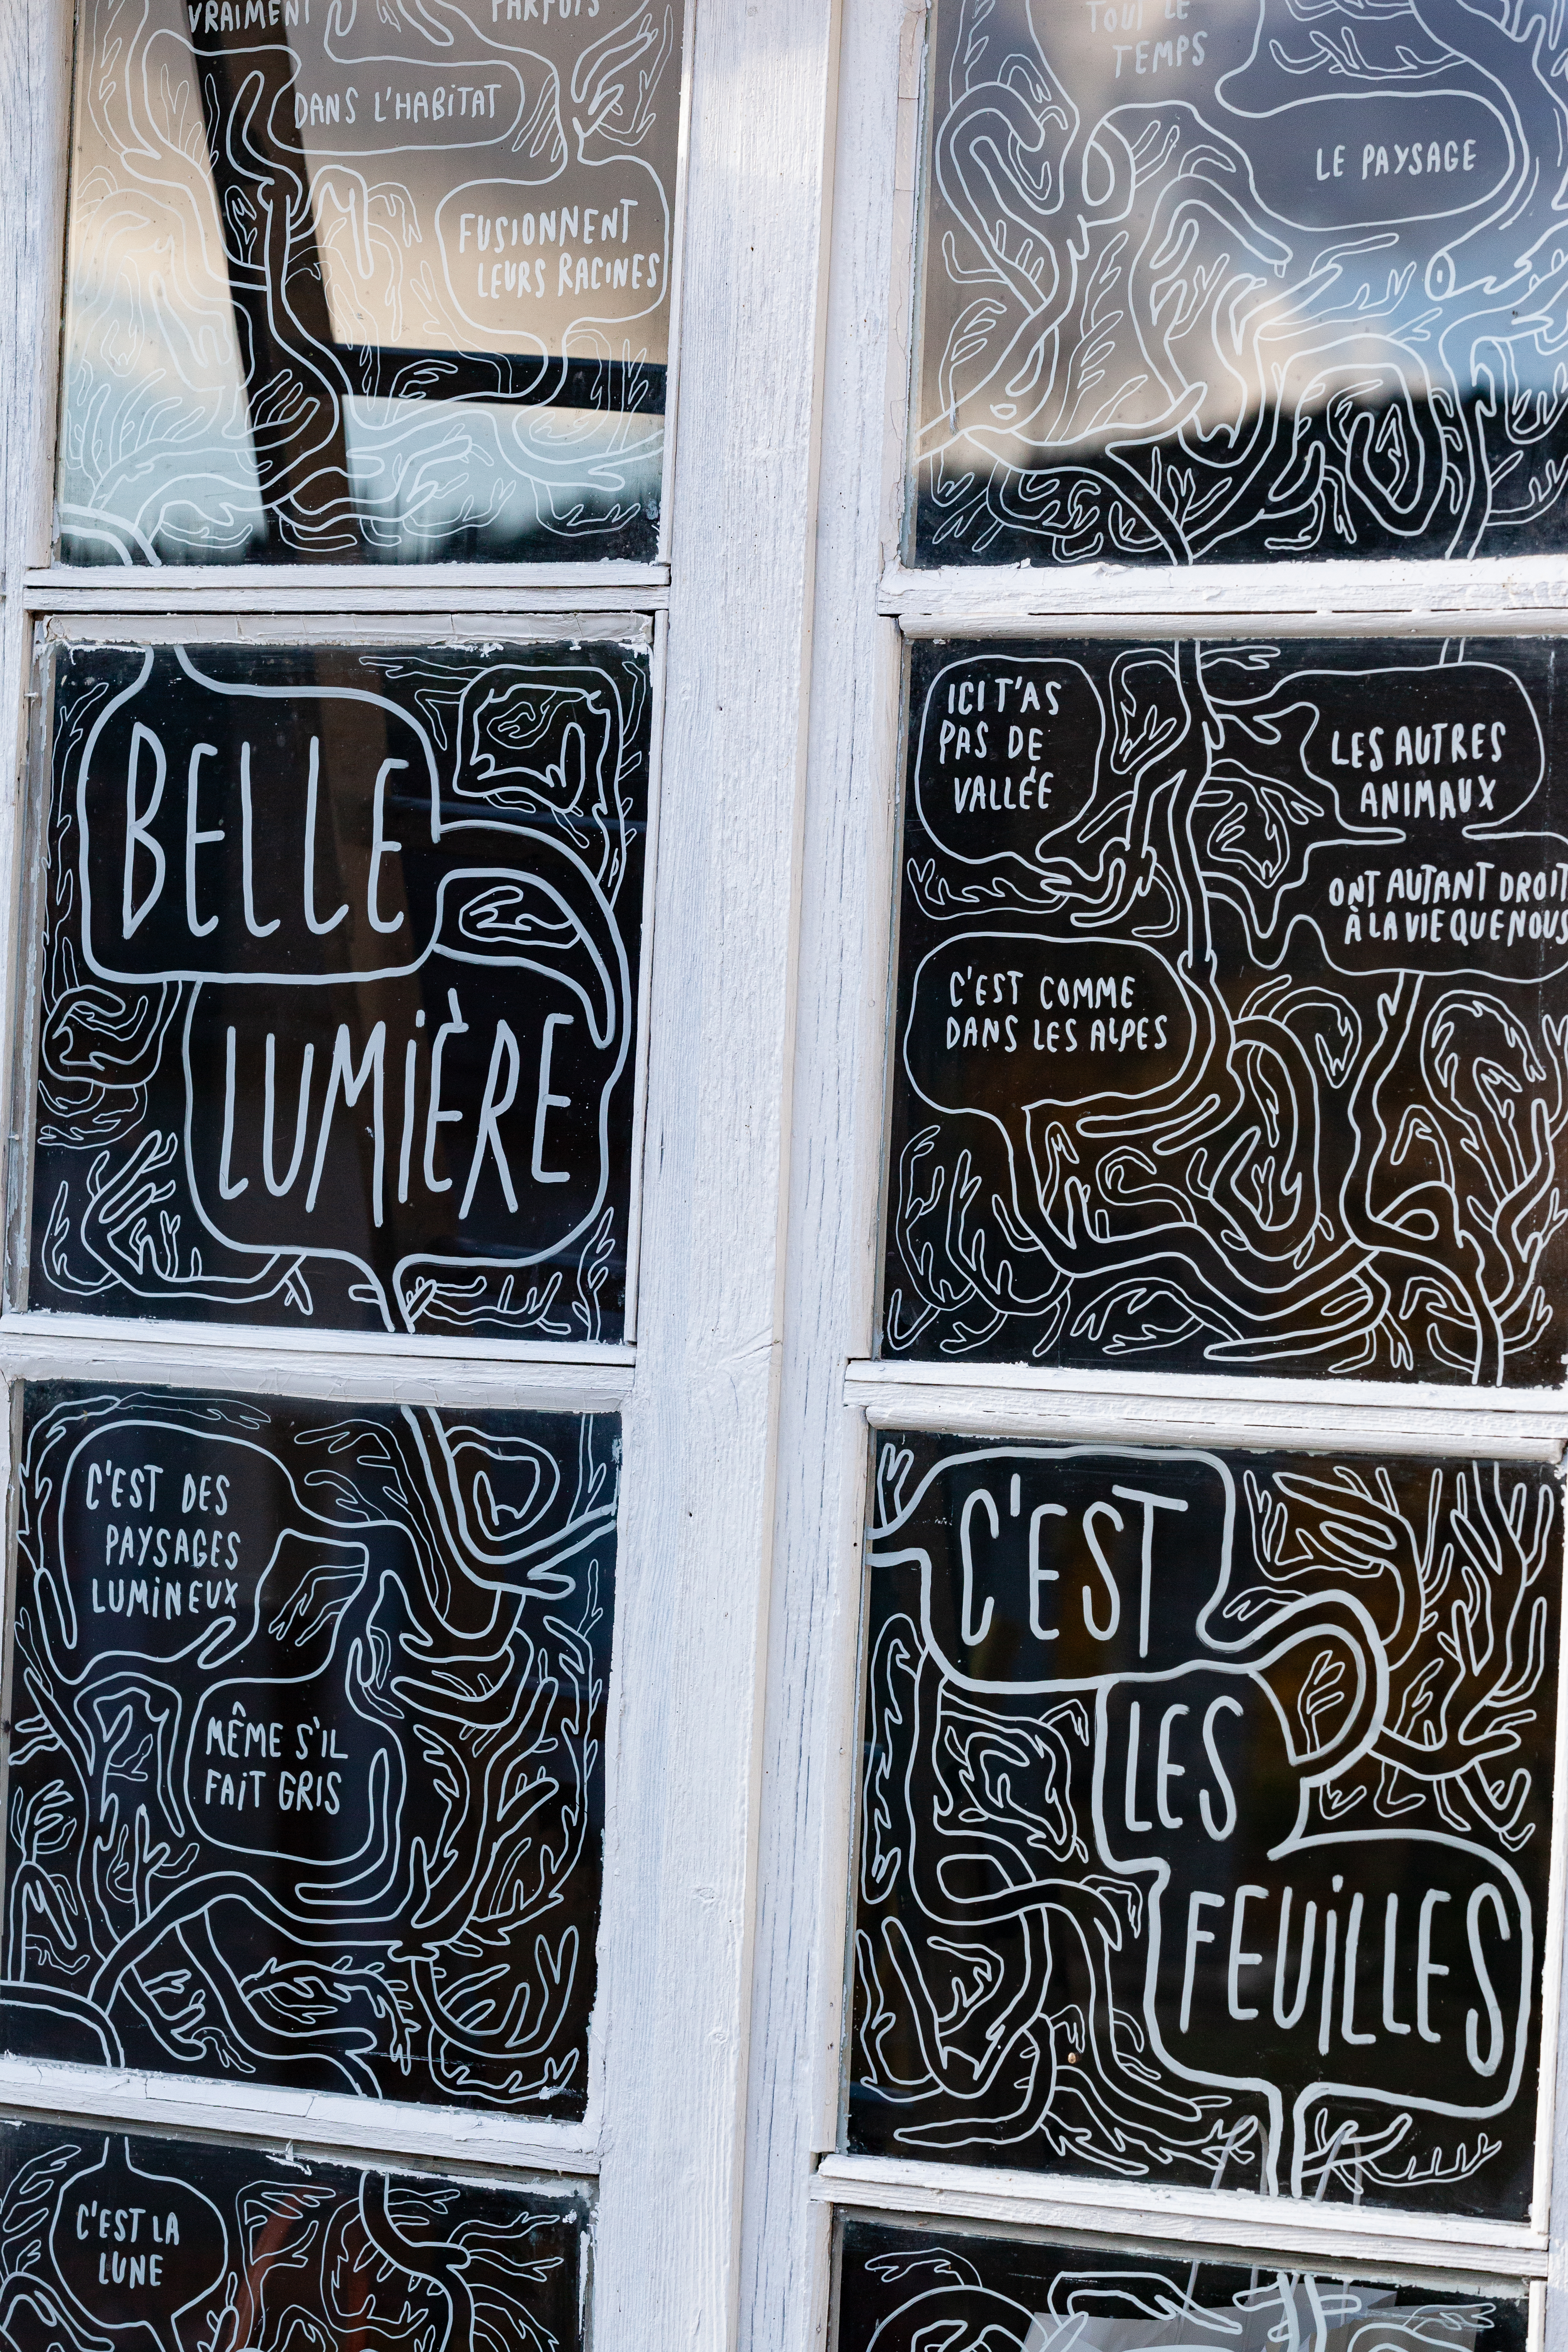 VRAIMENT
PARFOIS
DANS L'HABITAT
FUSIONNENT
LEURS RACINES
TOUT LE
TEMPS
LE PAYSAGE
BELLE
LUMIÈRE
ICI T'AS
PAS DE
VALLÉE
LES AUTRES
ANIMAUX
ONT AUTANT DROIT
À LA VIE QUE NOUS
C'EST COMME
DANS LES ALPES
C'EST DES
PAYSAGES
LUMINEUX
MÊME S'IL
FAIT GRIS
C'EST
LES
FEUILLES
C'EST LA
LUNE